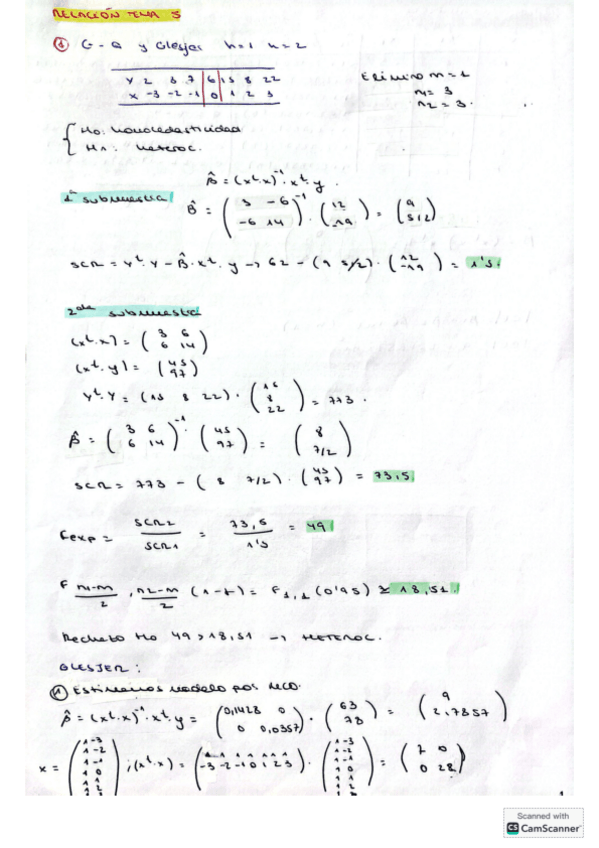 RELACIÓN TEMA 5
① G-Q y Glesjer h=1 h=2
Y 2 3 7 6 15 8 22
X -3 -2 -1 0 1 2 3
Elimino m=1
n1 = 3
n2 = 3
Ho: homocedasticidad
H1: heteroc.
β̂ = (x^t·x)^-1 · x^t·y.
1ª submuestra
β̂ = (3 -6 -6 14)^-1 · (12 -19) = (9 5/2)
SCR = Y^t·Y - β̂·x^t·y → 62 - (9 5/2) · (12 -19) = 1'5.
2da submuestra
(x^t·x) = (3 6 6 14)
(x^t·y) = (45 97)
Y^t·Y = (15 8 22) · (15 8 22) = 773.
β̂ = (3 6 6 14)^-1 · (45 97) = (8 7/2)
SCR = 773 - (8 7/2) · (45 97) = 73,5
Fexp = SCR2 / SCR1 = 73,5 / 1'5 = 49
F n1-m / 2 , n2-m / 2 (1-α) = F1,1 (0'95) ≅ 18,51.
Rechazo Ho 49 > 18,51 → HETEROC.
GLESJER:
① Estimamos modelo por MCO.
β̂ = (x^t·x)^-1 · x^t·y = (0,1428 0 0 0,0357) · (63 78) = (9 2,7857)
x = (1 -3 1 -2 1 -1 1 0 1 1 1 2 1 3) ; (x^t·x) = (1 1 1 1 1 1 1 -3 -2 -1 0 1 2 3) · (1 -3 1 -2 1 -1 1 0 1 1 1 2 1 3) = (7 0 0 28)
Scanned with
CS CamScanner